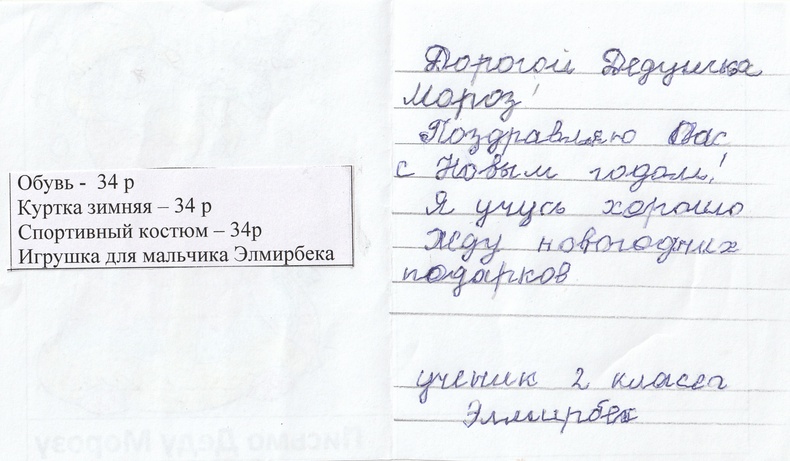 Обувь - 34 р
Куртка зимняя – 34 р
Спортивный костюм – 34р
Игрушка для мальчика Элмирбека
Дорогой Дедушка
Мороз!
Поздравляю Вас
с Новым годом!
Я учусь хорошо
Жду новогодних
подарков
ученик 2 класса
Элмирбек
Письмо Деду Морозу